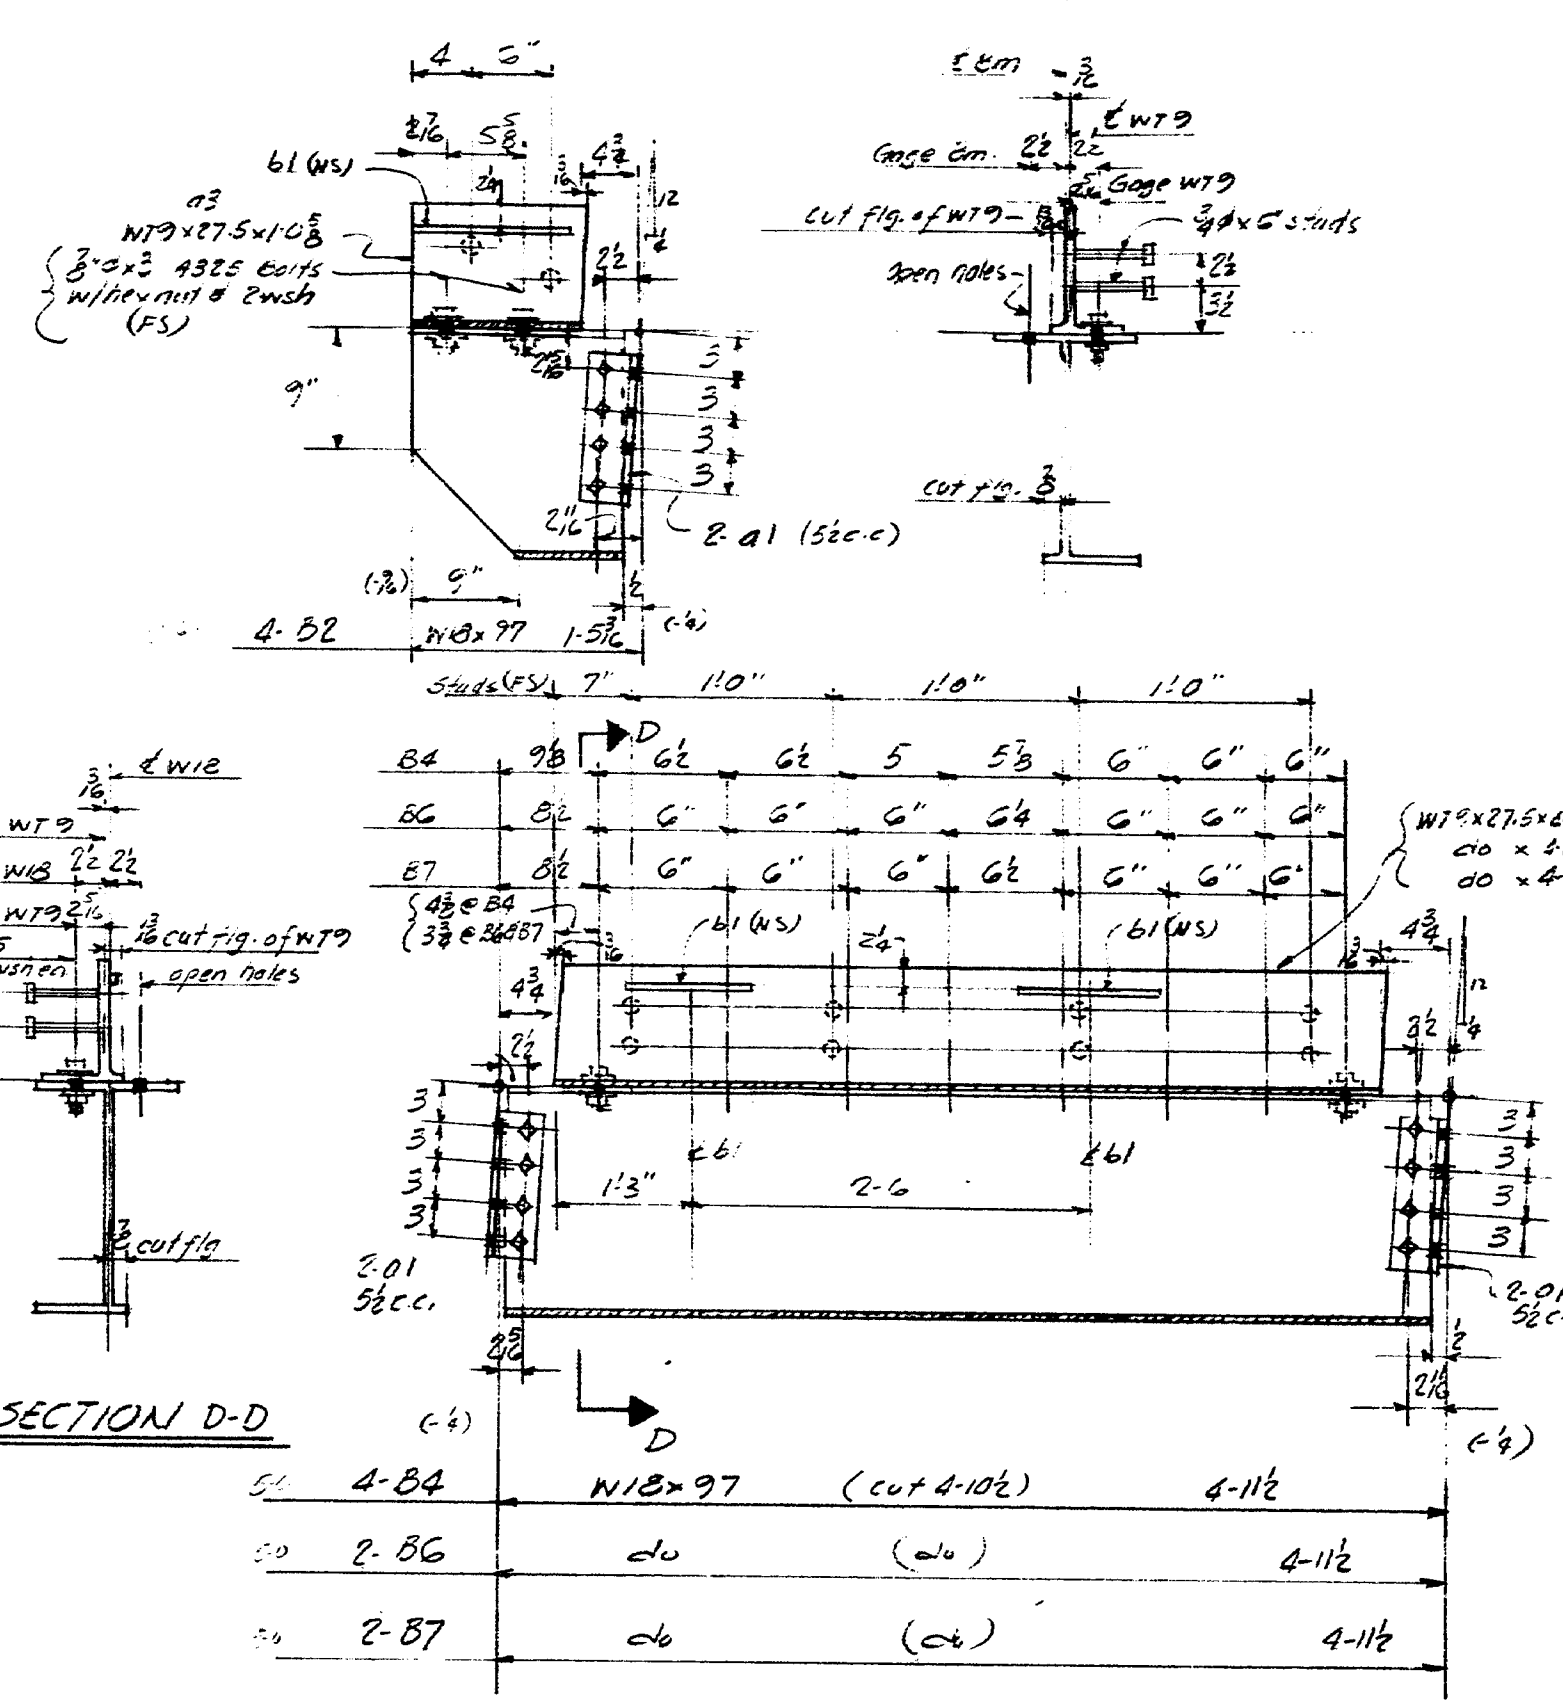 4 5"
2 7/16 5 5/8 4 3/4
b1 (NS) 2 1/4 3/16 12
a3 1/4
WT9x27.5x1-0 5/8
7/8"ø x 3 A325 Bolts
w/hex nut & 2 wsh
(FS)
2 1/2
9" 2 5/16 3
3
3
3
2 11/16 2- a1 (5 1/2 c.c)
9" 1/2 (-1/4)
4- B2 W18x97 1-5 3/16
℄ Bm 3/16
℄ WT9
Gage Bm. 2 1/2 2 1/2
2 5/16 Gage WT9
cut flg. of WT9
3/4 ø x 5 studs
open holes 2 1/2
3 1/2
cut flg. 3/8
Studs (FS) 7" 1'-0" 1'-0" 1'-0"
D
B4 9 1/8 6 1/2 6 1/2 5 5 7/8 6" 6" 6"
B6 8 1/2 6" 6" 6" 6 1/4 6" 6" 6"
B7 8 1/2 6" 6" 6" 6 1/2 6" 6" 6"
4 3/8 @ B4
3 3/4 @ B6 & B7
b1 (NS) 2 1/4 b1 (NS)
WT9x27.5x4
do x 4
do x 4-
3/16 3/16 4 3/4
4 3/4 12
2 1/2 2 1/2 1/4
3 3
3 3
3 3
3 3
℄ b1 ℄ b1
1'-3" 2-6
2-a1
5 1/2 c.c.
2-a1
5 1/2 c.
2 5/16 1/2
2 11/16
D
(-1/4) (-1/4)
3/16 ℄ W18
WT9
W18 2 1/2 2 1/2
WT9 2 5/16
cut flg. of WT9
open holes
3/8 cut flg
SECTION D-D
4-B4 W18x97 (cut 4-10 1/2) 4-11 1/2
2-B6 do (do) 4-11 1/2
2-B7 do (do) 4-11 1/2